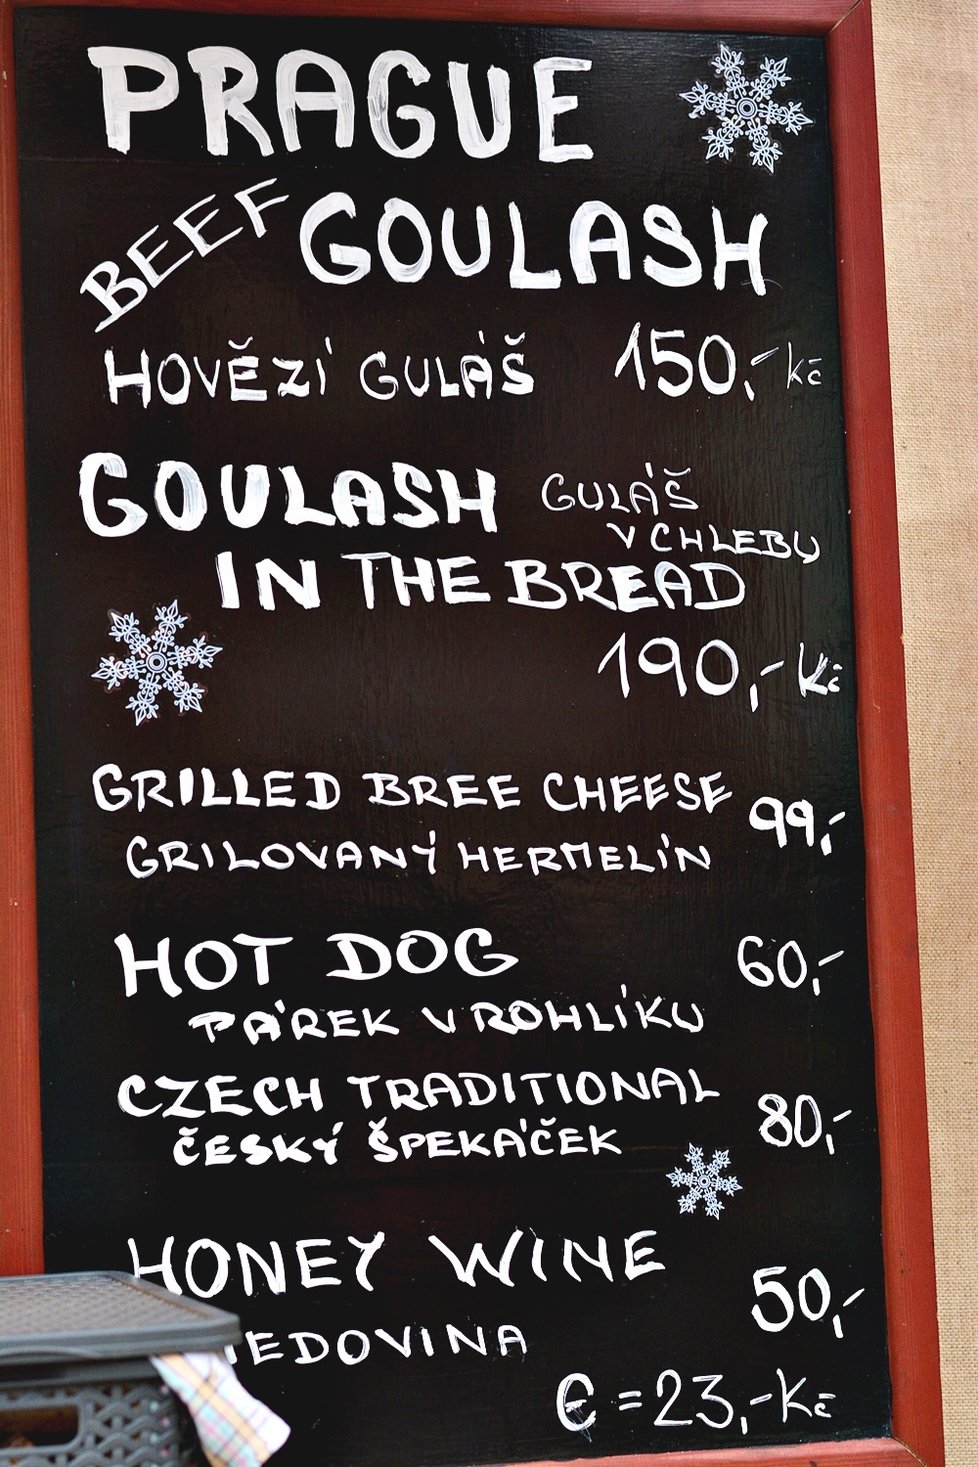 PRAGUE
BEEF GOULASH
HOVĚZÍ GULÁŠ 150,- Kč
GOULASH GULÁŠ
V CHLEBU
IN THE BREAD
190,- Kč
GRILLED BREE CHEESE 99,-
GRILOVANÝ HERMELÍN
HOT DOG 60,-
PÁREK V ROHLÍKU
CZECH TRADITIONAL 80,-
ČESKÝ ŠPEKÁČEK
HONEY WINE 50,-
EDOVINA
€ = 23,- Kč